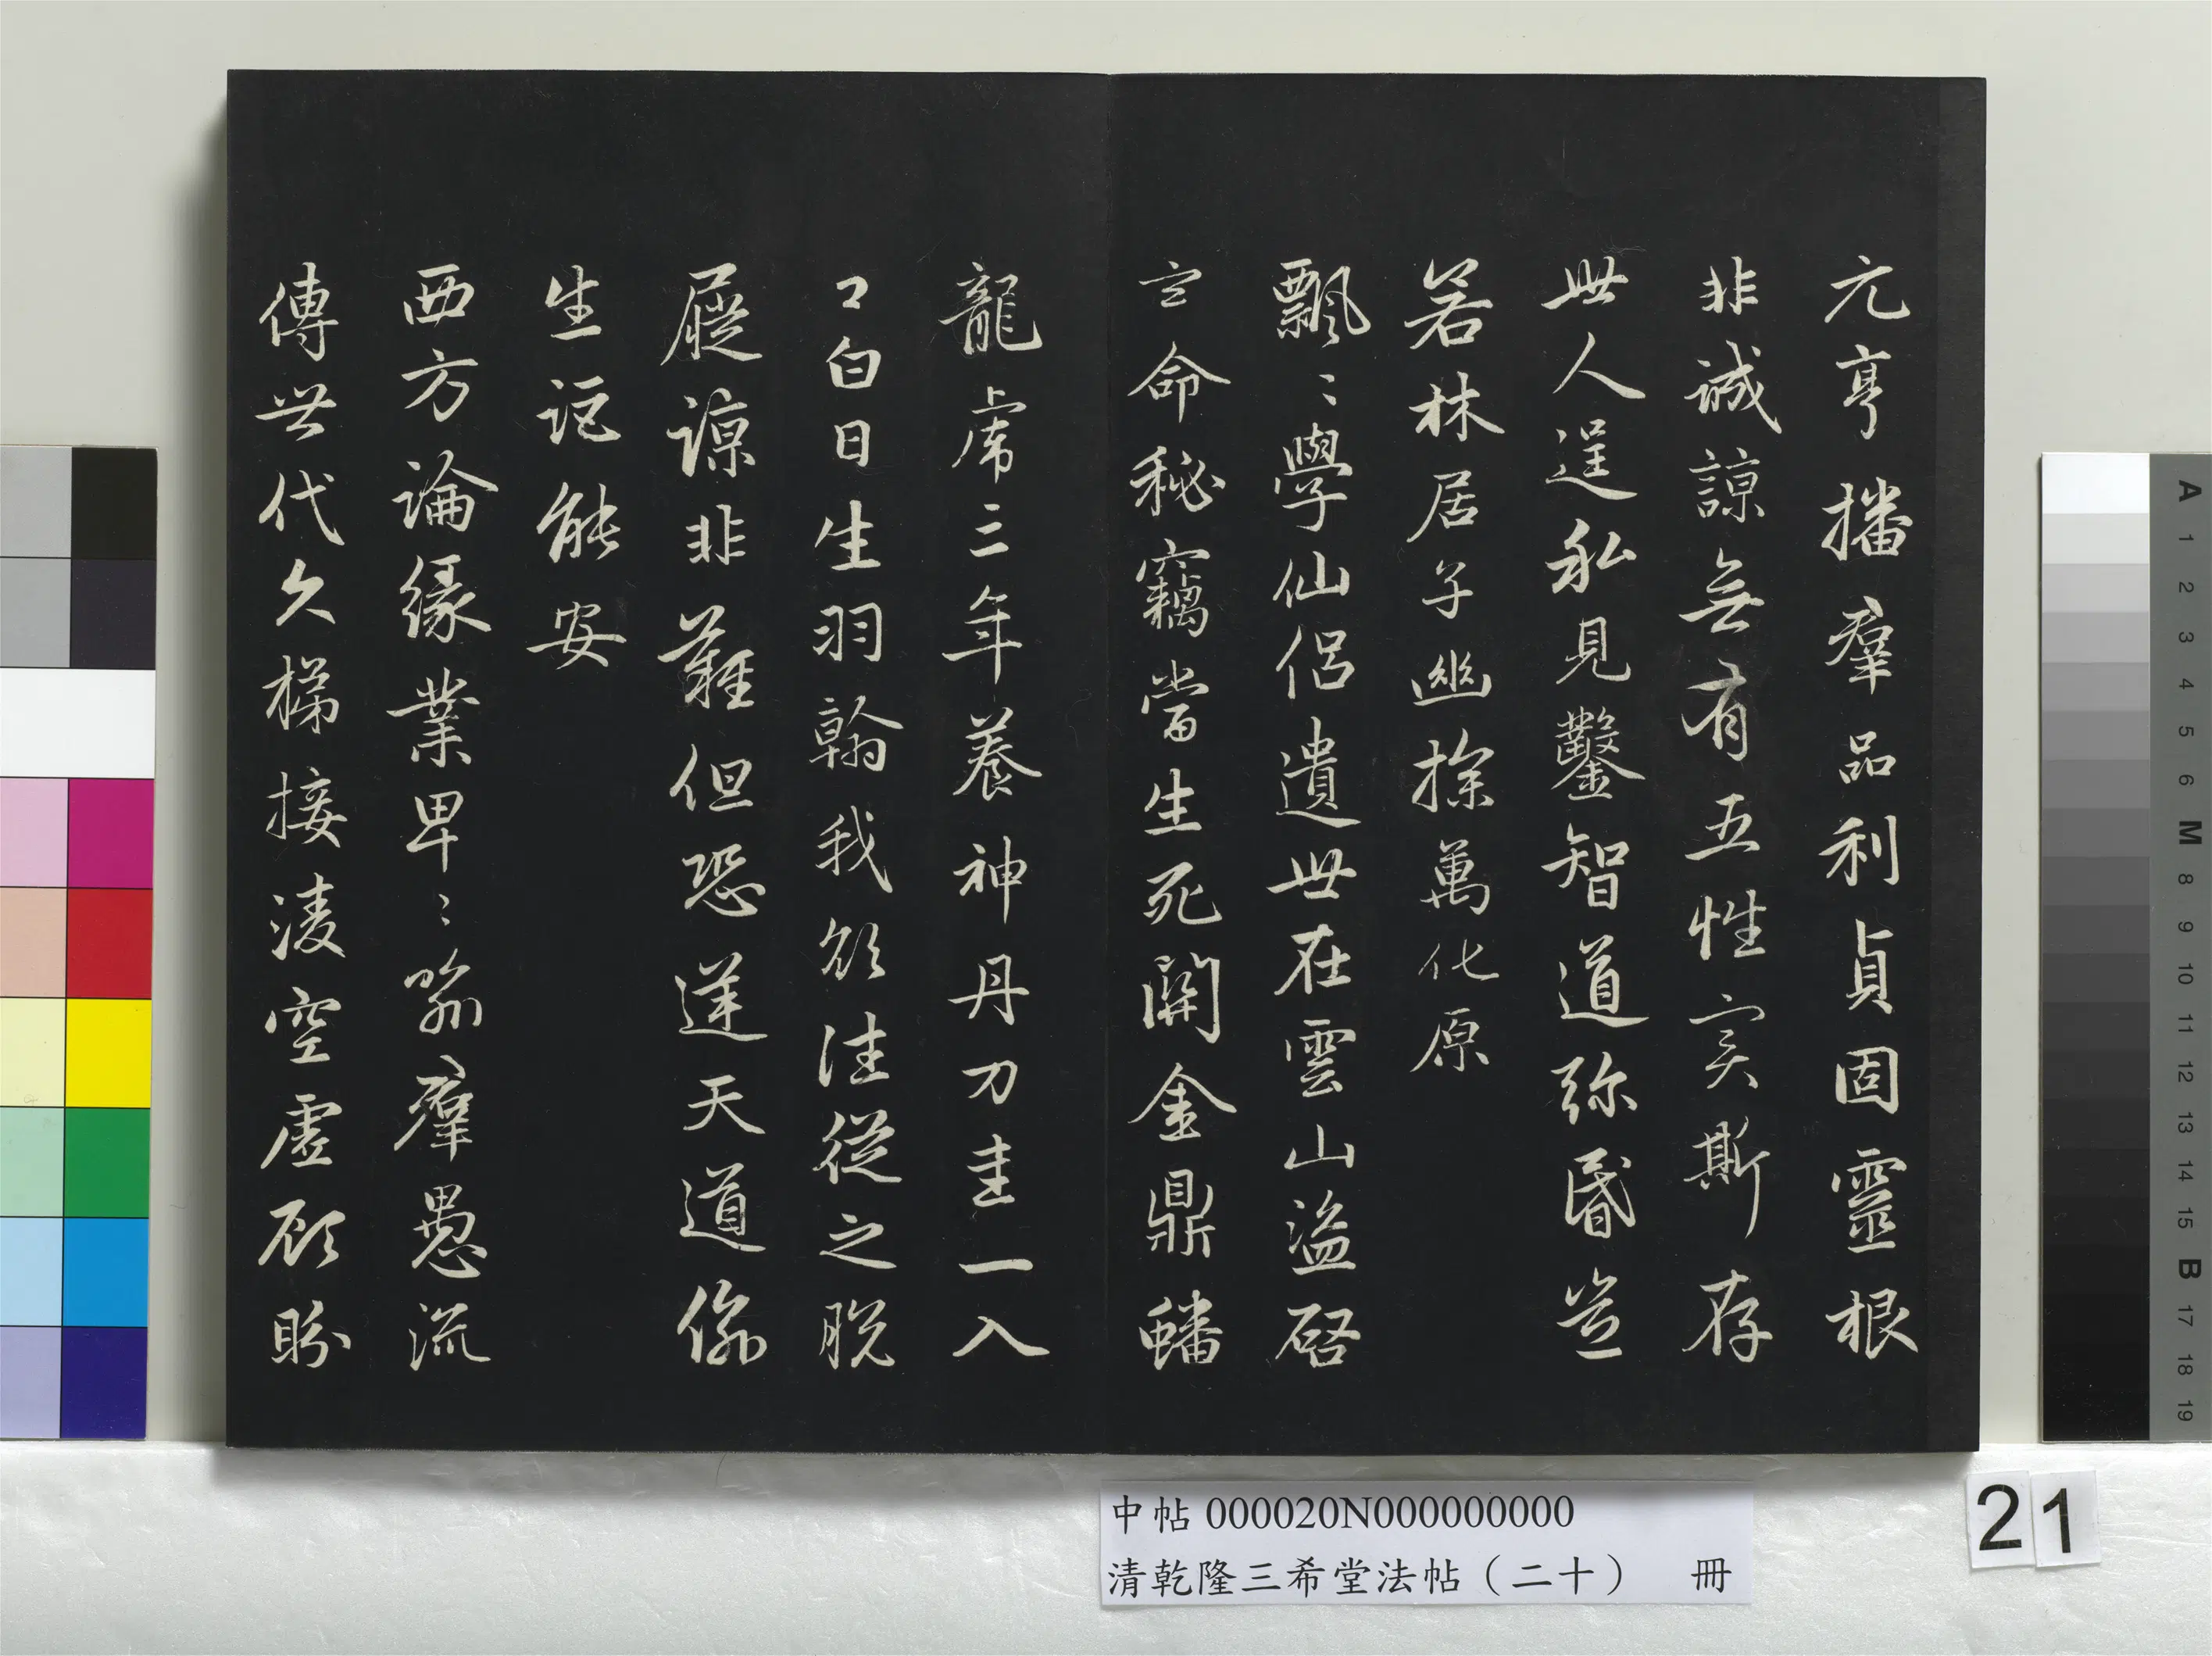 元亨播羣品利貞固靈根
非誠諒無有五性實斯存
世人逞私見鑿智道弥昏豈
若林居子幽探萬化原
飄〻學仙侶遺世在雲山盗啓
玄命秘竊當生死關金鼎蟠
龍虎三年養神丹刀圭一入
口白日生羽翰我欲往從之脱
屣諒非難但恐逆天道偷
生詎能安
西方論緣業卑〻喻羣愚流
傳世代久梯接淩空虚顧盻
中帖 000020N000000000
清乾隆三希堂法帖（二十） 冊
21
A 1 2 3 4 5 6 M 8 9 10 11 12 13 14 15 B 17 18 19